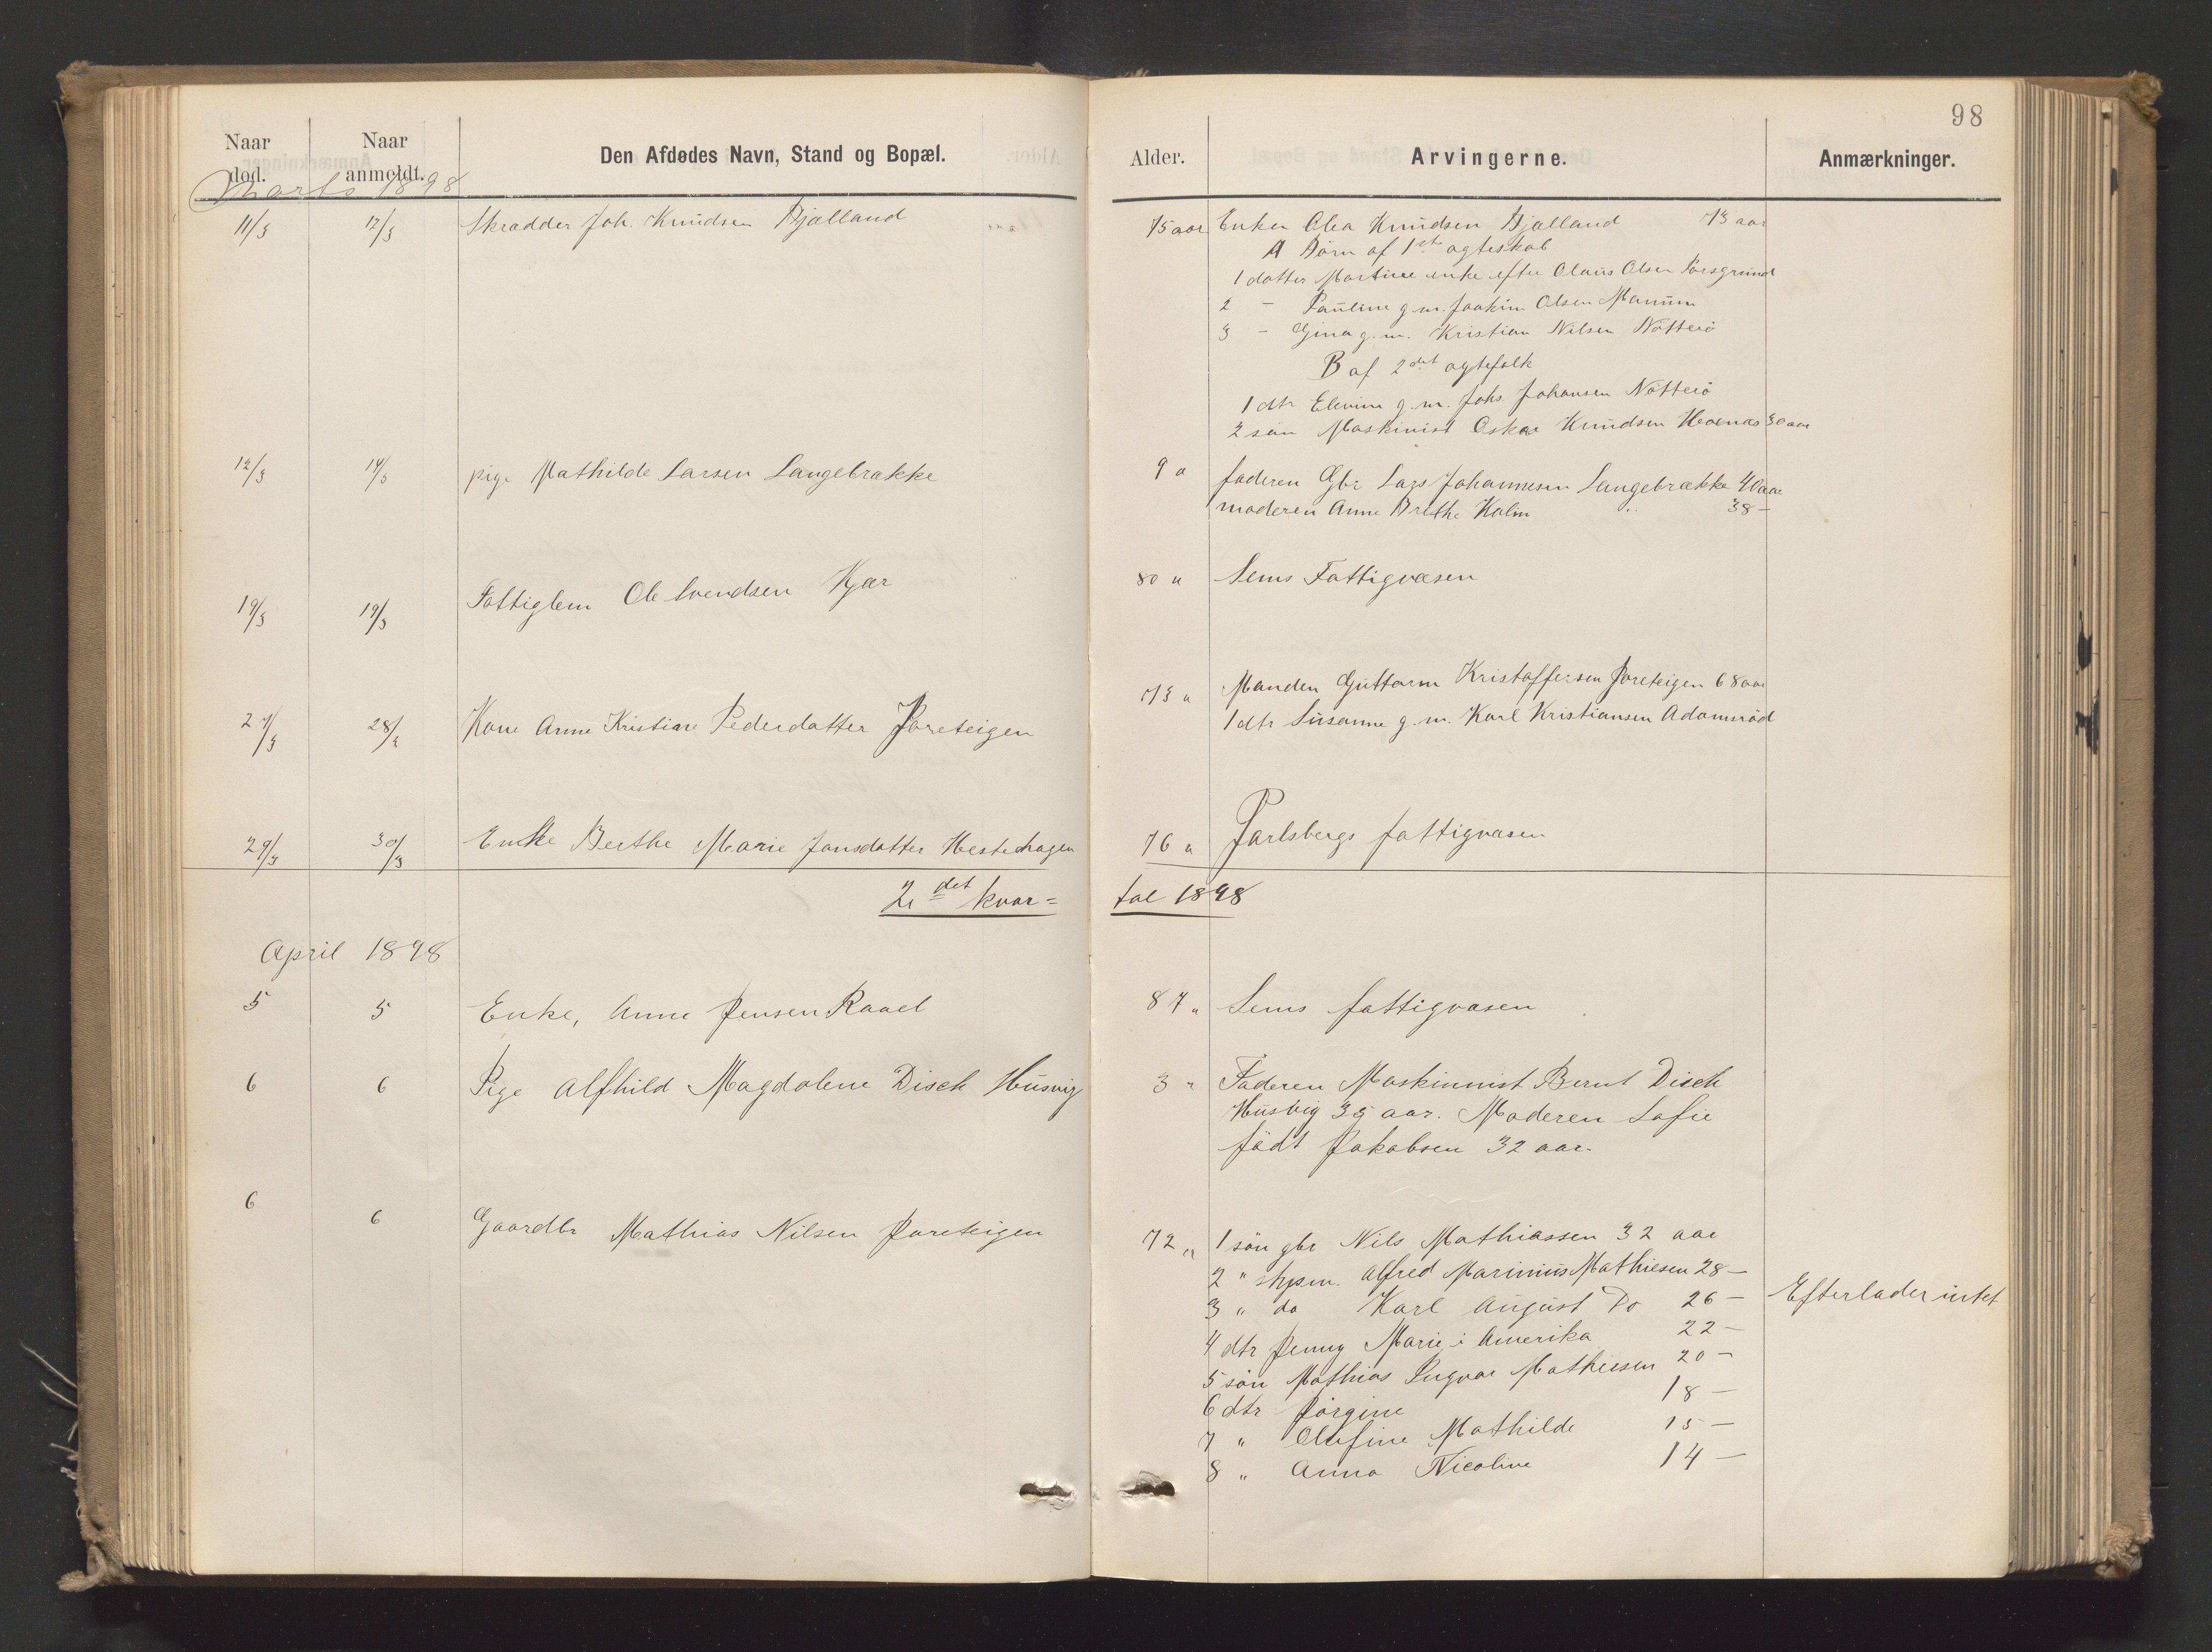 98
Naar død.
Naar anmeldt.
Den Afdødes Navn, Stand og Bopæl.
Alder.
Arvingerne.
Anmærkninger.
Marts 1898
11/3 12/3 Skrædder Joh. Knudsen Bjælland 75 aar Enken Olea Knudsen Bjælland 73 aar
A Børn af 1ste ægteskab
1 datter Martine enke efter Olaus Olsen Porsgrund
2 - Pauline g. m. Joakim Olsen Manum
3 - Gina g. m. Kristian Nilsen Nötterö
B af 2det ægtefolk
1 dtr Elevine g. m. Johs. Johansen Nötterö
2 sön Maskinist Oskar Knudsen Hoenæs 30 aar
12/3 14/3 pige Mathilde Larsen Langebrække 9 a faderen Gbr Lars Johannesen Langebrække 40 aar
moderen Anne Brethe Holm 38 -
19/3 19/3 Fattiglem Ole Svendsen Kjær 80 a Sems Fattigvæsen
27/3 28/3 Kone Anne Kristine Pedersdatter Jareteigen 73 a Manden Guttorm Kristoffersen Jareteigen 68 aar
1 dtr Susanne g. m. Karl Kristiansen Adamsröd
29/3 30/3 Enke Berthe Marie Jansdatter Hestehagen 76 a Jarlsbergs fattigvæsen
2det kvar= tal 1898
April 1898
5 5 Enke, Anne Jensen Raael 87 a Sems fattigvæsen
6 6 Pige Alfhild Magdalene Disch Husvig 3 " Faderen Maskinnist Bernt Disch
Husvig 35 aar. Moderen Sofie
födt Jakobsen 32 aar.
6 6 Gaardbr Mathias Nilsen Jareteigen 72 a 1 sön gbr Nils Mathiassen 32 aar
2 " skpm. Alfred Marinius Mathiesen 28 -
3 " do Karl August Do 26 - Efterlader intet
4 dtr Jenny Marie i Amerika 22 -
5 sön Mathias Ingvar Mathiesen 20 -
6 dtr Jörgine 18 -
7 " Olufine Mathilde 15 -
8 " Anna Nicoline 14 -